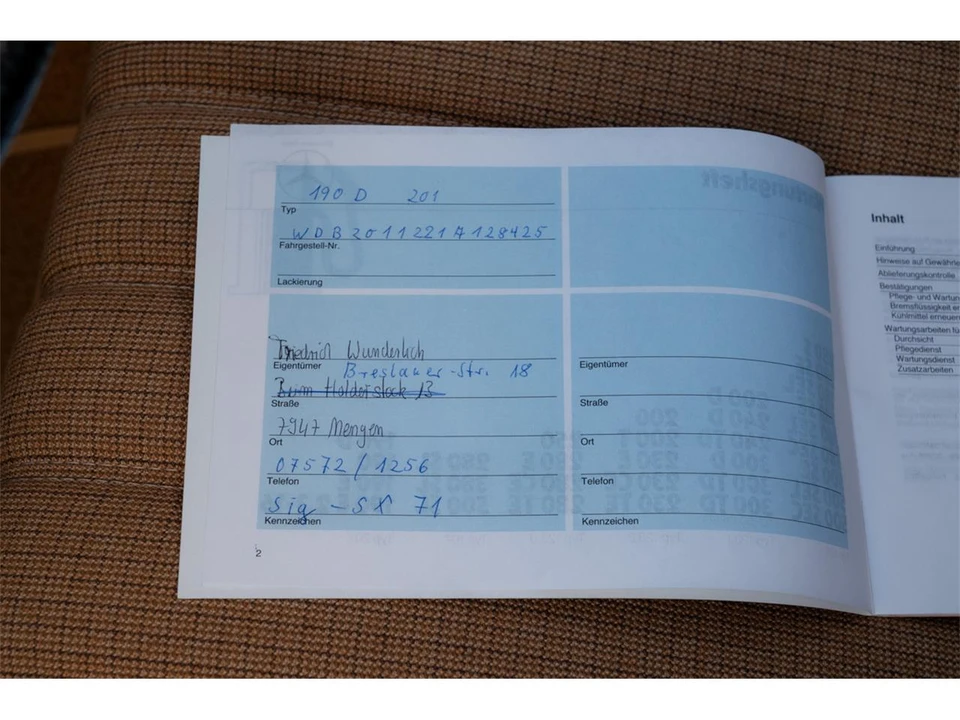 190 D 201
Typ
WDB2011221A128425
Fahrgestell-Nr.
Lackierung
Friedrich Wunderlich
Eigentümer
Breslauer-Str. 18
Beim Holderstock 13
Straße
7947 Mengen
Ort
07572/1256
Telefon
Sig-SX 71
Kennzeichen
2
Eigentümer
Straße
Ort
Telefon
Kennzeichen
Inhalt
Einführung
Hinweise auf Gewährle
Ablieferungskontrolle
Bestätigungen
Pflege- und Wartun
Bremsflüssigkeit er
Kühlmittel erneuer
Wartungsarbeiten fü
Durchsicht
Pflegedienst
Wartungsdienst
Zusatzarbeiten